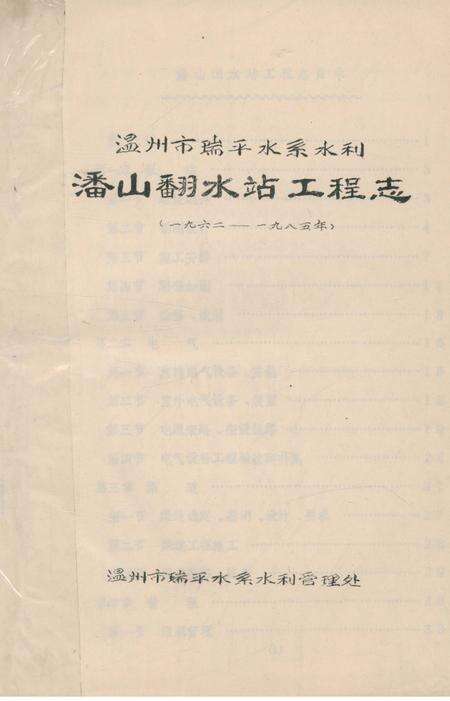 温州市瑞平水系水利
潘山翻水站工程志
(一九六二——一九八五年)
温州市瑞平水系水利管理处